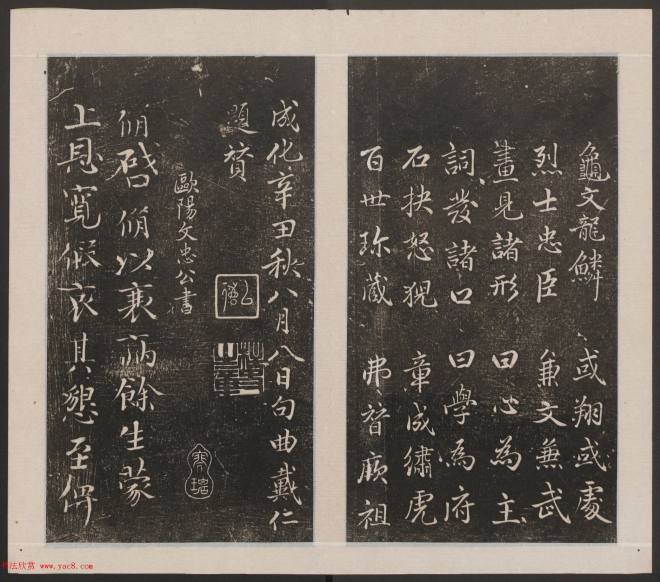 龜文龍鱗 或翔或處
烈士忠臣 兼文兼武
畫見諸形 曰心為主
詞發諸口 曰學為府
石抉怒猊 章成繡虎
百世珍藏 弗替厥祖
成化辛丑秋八月八日句曲戴仁
題贊
歐陽文忠公書
脩啓脩以衰病餘生蒙
上恩寬假哀其憊至俾
书法欣赏 www.yac8.com